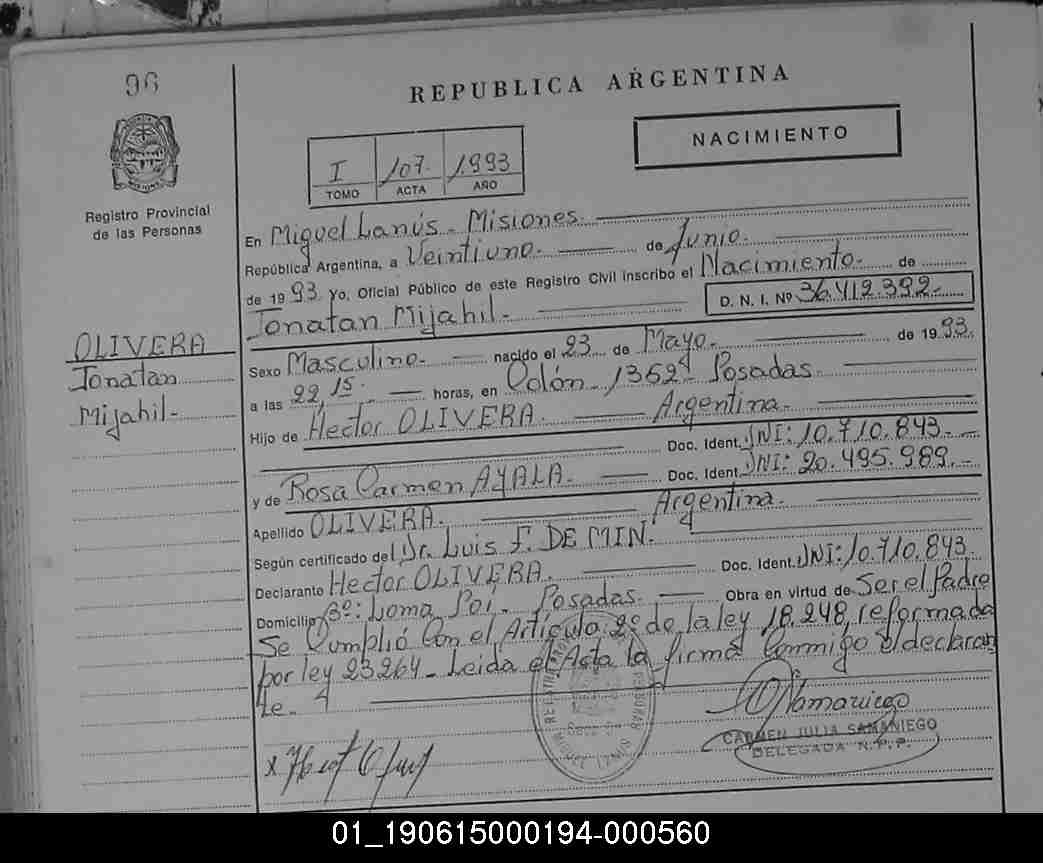 96
REPUBLICA ARGENTINA
NACIMIENTO
I 107. 1.993
TOMO ACTA AÑO
Registro Provincial
de las Personas
En Miguel Lanús - Misiones.
República Argentina, a Veintiuno. de Junio.
de 1993. Yo, Oficial Público de este Registro Civil inscribo el Nacimiento. de
Jonatan Mijahil. D. N. I. Nº 36.412.392-
OLIVERA
Jonatan
Mijahil-
Sexo Masculino. nacido el 23 de Mayo. de 1993.
a las 22,15. horas, en Colón 1352 Posadas.
Hijo de Héctor OLIVERA. Argentina.
Doc. Ident. DNI: 10.710.843.-
y de Rosa Carmen AYALA. Doc. Ident. DNI: 20.495.989.-
Apellido OLIVERA. Argentina.
Según certificado del Dr. Luis F. DE MIN.
Declarante Hector OLIVERA. Doc. Ident. DNI: 10.710.843
Domicilio Bº: Loma Poí. Posadas. Obra en virtud de Ser el Padre
Se Cumplió Con el Artículo 2º de la ley 18.248, reformada
por ley 23264 - Leida el Acta la firma Conmigo el declaran
te.
CARMEN JULIA SAMANIEGO
DELEGADA R.P.P.
01_190615000194-000560